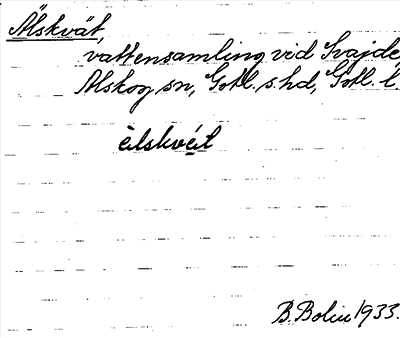 Älskvät,
vattensamling vid Svajde,
Alskog sn, Gotl. s. hd, Gotl. l.
èlskvét
B. Bolin 1933.